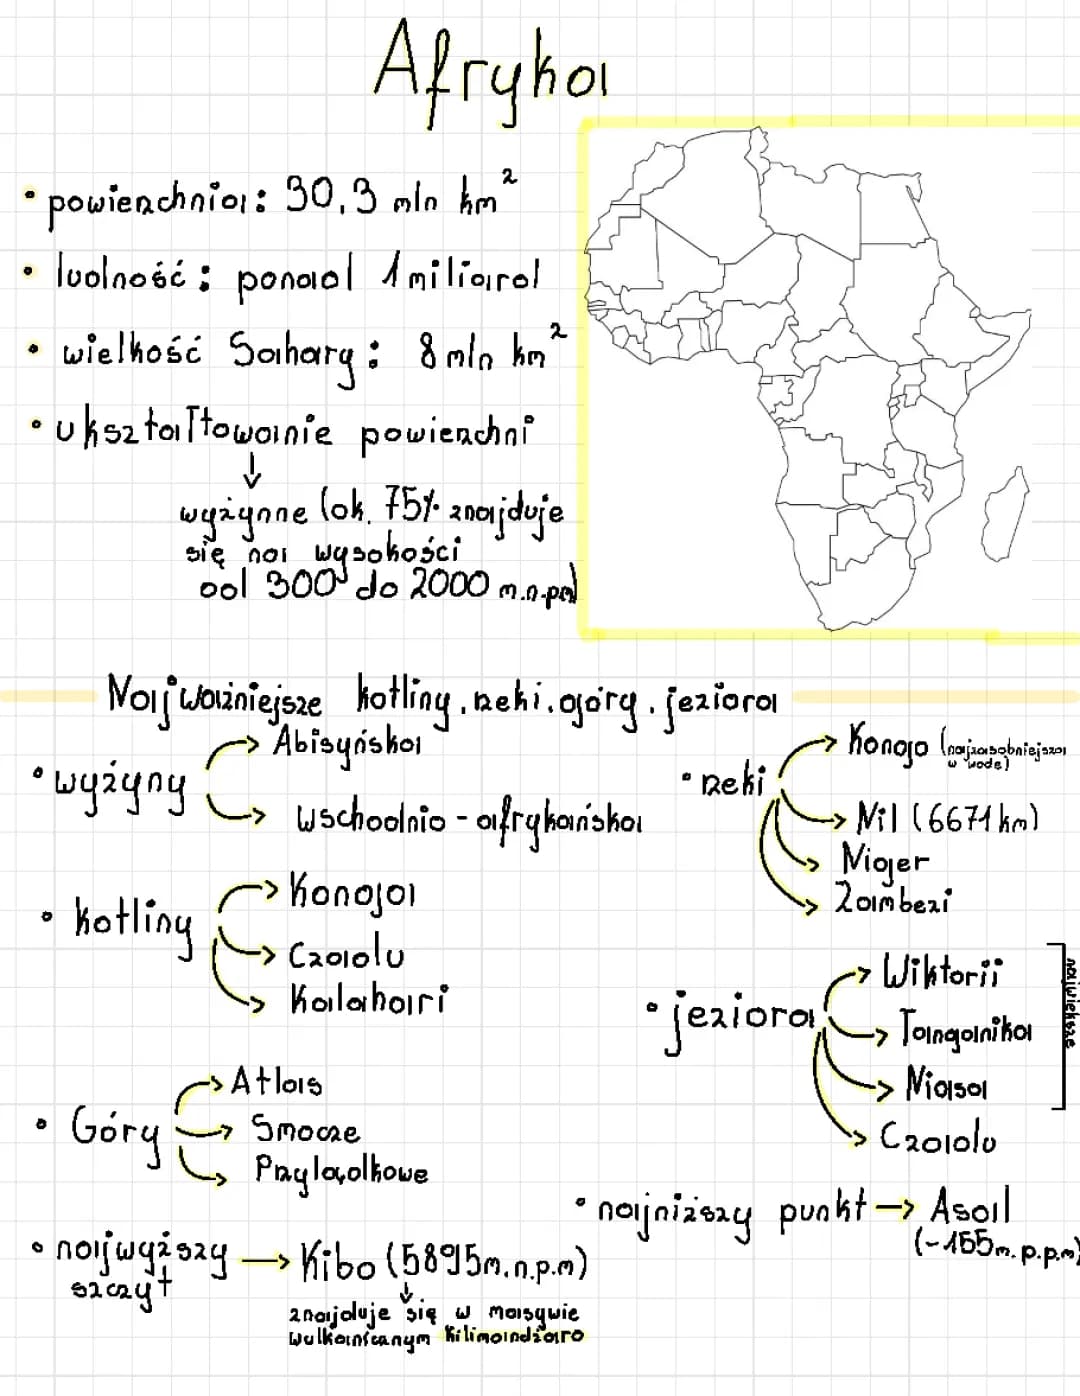 Afryka
• powierzchnia: 30,3 mln km²
• ludność: ponad 1 miliard
• wielkość Sahary: 8 mln km²
• ukształtowanie powierzchni
↓
wyżynne (ok. 75% znajduje
się na wysokości
od 300 do 2000 m.n.pm)
Najważniejsze kotliny, rzeki, góry, jeziora
• wyżyny
→ Abisyńska
→ wschodnio-afrykańska
• rzeki
→ Kongo (najzasobniejsza
w wodę)
→ Nil (6671 km)
→ Niger
→ Zambezi
• kotliny
→ Konga
→ Czadu
→ Kalahari
• jeziora
→ Wiktorii
→ Tanganika
→ Niasa
→ Czadu
największe
• Góry
→ Atlas
→ Smocze
→ Przylądkowe
• najniższy punkt → Asal
(-155m.p.p.m)
• najwyższy
szczyt
→ Kibo (5895m.n.p.m)
↓
znajduje się w masywie
wulkanicznym Kilimandżaro